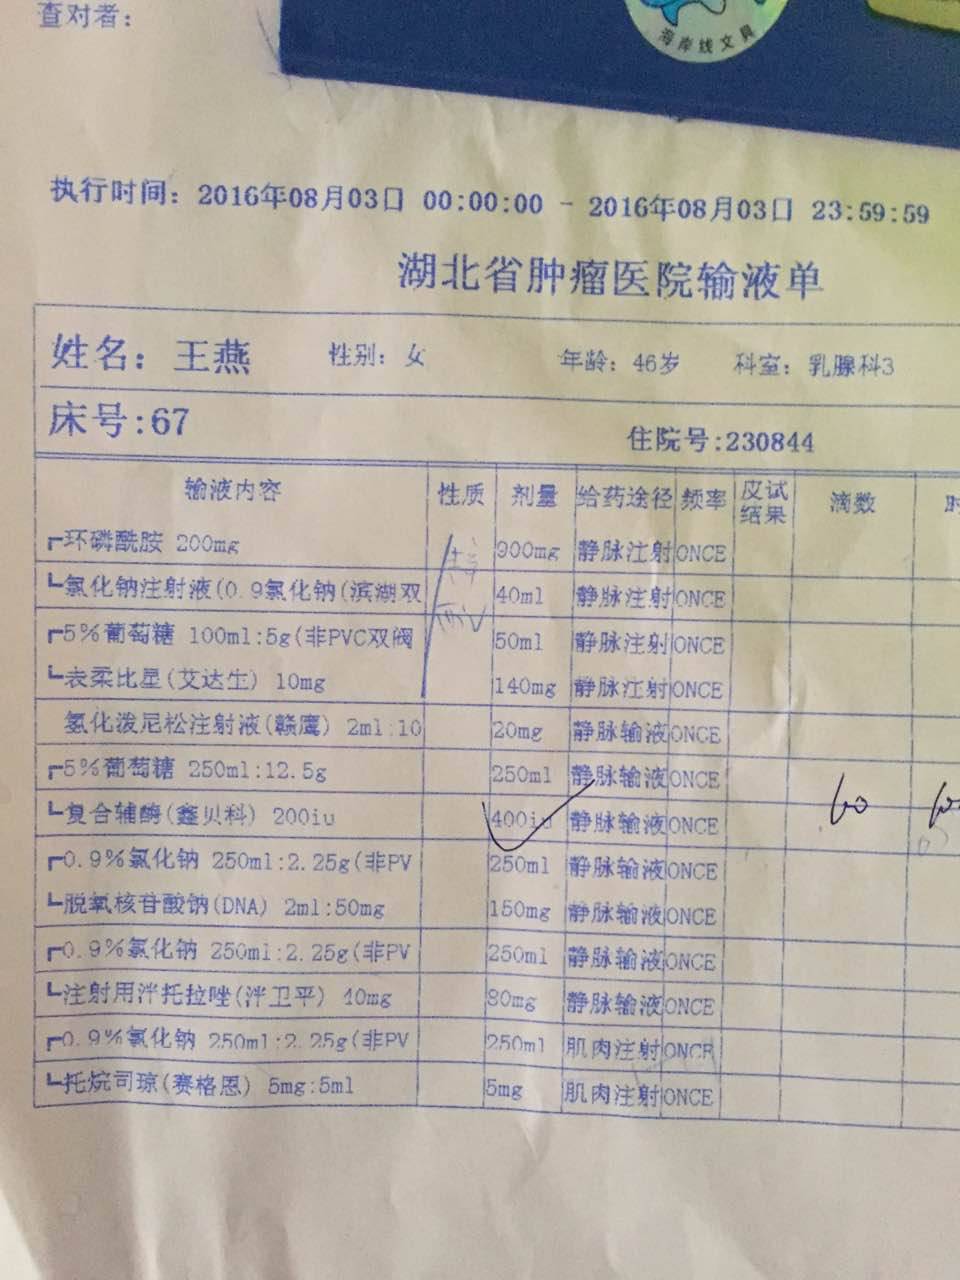 查对者：
海岸线文具
执行时间：2016年08月03日 00:00:00 - 2016年08月03日 23:59:59
湖北省肿瘤医院输液单
姓名：王燕 性别：女 年龄：46岁 科室：乳腺科3
床号:67 住院号:230844
输液内容 性质 剂量 给药途径 频率 皮试结果 滴数 时
┏环磷酰胺 200mg 900mg 静脉注射 ONCE
┗氯化钠注射液(0.9氯化钠(滨湖双 40ml 静脉注射 ONCE
┏5%葡萄糖 100ml:5g(非PVC双阀 50ml 静脉注射 ONCE
┗表柔比星(艾达生) 10mg 140mg 静脉注射 ONCE
氢化泼尼松注射液(赣鹰) 2ml:10 20mg 静脉输液 ONCE
┏5%葡萄糖 250ml:12.5g 250ml 静脉输液 ONCE
┗复合辅酶(鑫贝科) 200iu 400iu 静脉输液 ONCE 60
┏0.9%氯化钠 250ml:2.25g(非PV 250ml 静脉输液 ONCE
┗脱氧核苷酸钠(DNA) 2ml:50mg 150mg 静脉输液 ONCE
┏0.9%氯化钠 250ml:2.25g(非PV 250ml 静脉输液 ONCE
┗注射用泮托拉唑(泮卫平) 40mg 80mg 静脉输液 ONCE
┏0.9%氯化钠 250ml:2.25g(非PV 250ml 肌肉注射 ONCE
┗托烷司琼(赛格恩) 5mg:5ml 5mg 肌肉注射 ONCE